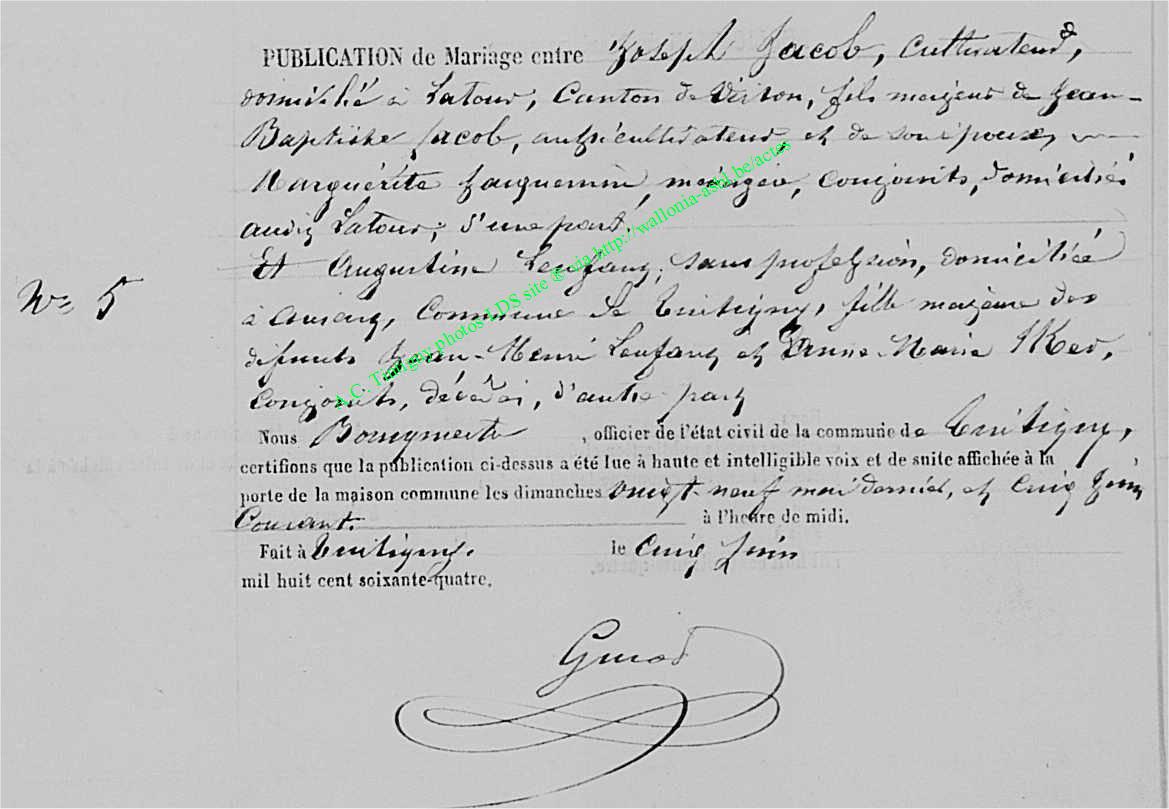 PUBLICATION de Mariage entre Joseph Jacob, cultivateur,
domicilié à Latour, Canton de Virton, fils majeur de Jean-
Baptiste Jacob, aussi cultivateur, et de son épouse,
Marguérite Jacquemin, conjoints, domiciliés
audit Latour; d'une part.
Et Augustine Lenfang, sans profession, domiciliée
à Ansart, Commune de Tintigny, fille majeure des
défunts Jean-Henri Lenfang et Anne-Marie
Conjoints, décédés, d'autre part
N° 5
Nous Bourgmestre , officier de l'état civil de la commune de Tintigny,
certifions que la publication ci-dessus a été lue à haute et intelligible voix et de suite affichée à la
porte de la maison commune les dimanches vingt-neuf mai dernier, et cinq Juin
Courant. à l'heure de midi.
Fait à Tintigny. le cinq Juin
mil huit cent soixante-quatre.
A.C. Tintigny photos LDS site © via http://wallonia-asbl.be/actes